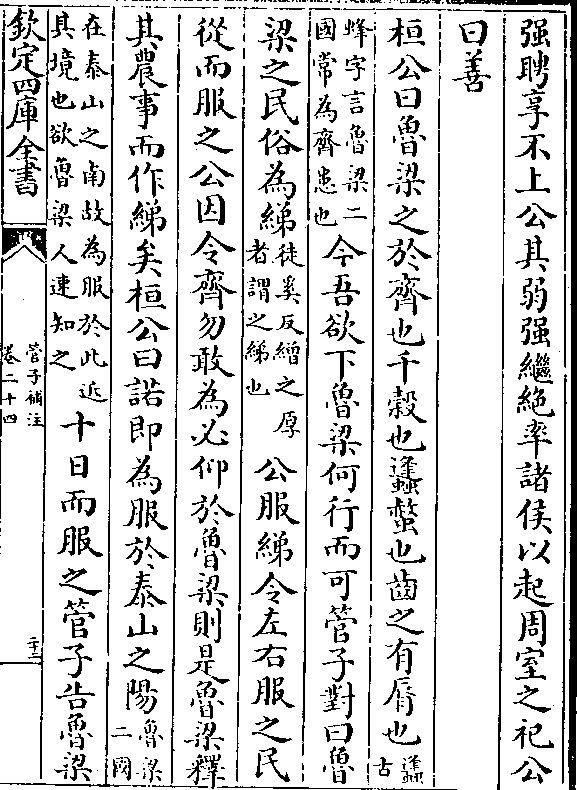 强聘享不上公其弱强繼絶率諸侯以起周室之祀公
曰善
桓公曰魯梁之於齊也千榖也蠭螫也齒之有脣也蠭古
蜂字言魯梁二國常為齊患也今吾欲下魯梁何行而可管子對曰魯
梁之民俗為綈徒奚反繒之厚者謂之綈也公服綈令左右服之民
從而服之公因令齊勿敢為必仰於魯梁則是魯梁釋
其農事而作綈矣桓公曰諾即為服於泰山之陽魯梁二國
在泰山之南故為服於此近其境也欲魯梁人速知之十日而服之管子告魯梁
欽定四庫全書
管子補注
卷二十四
二十二